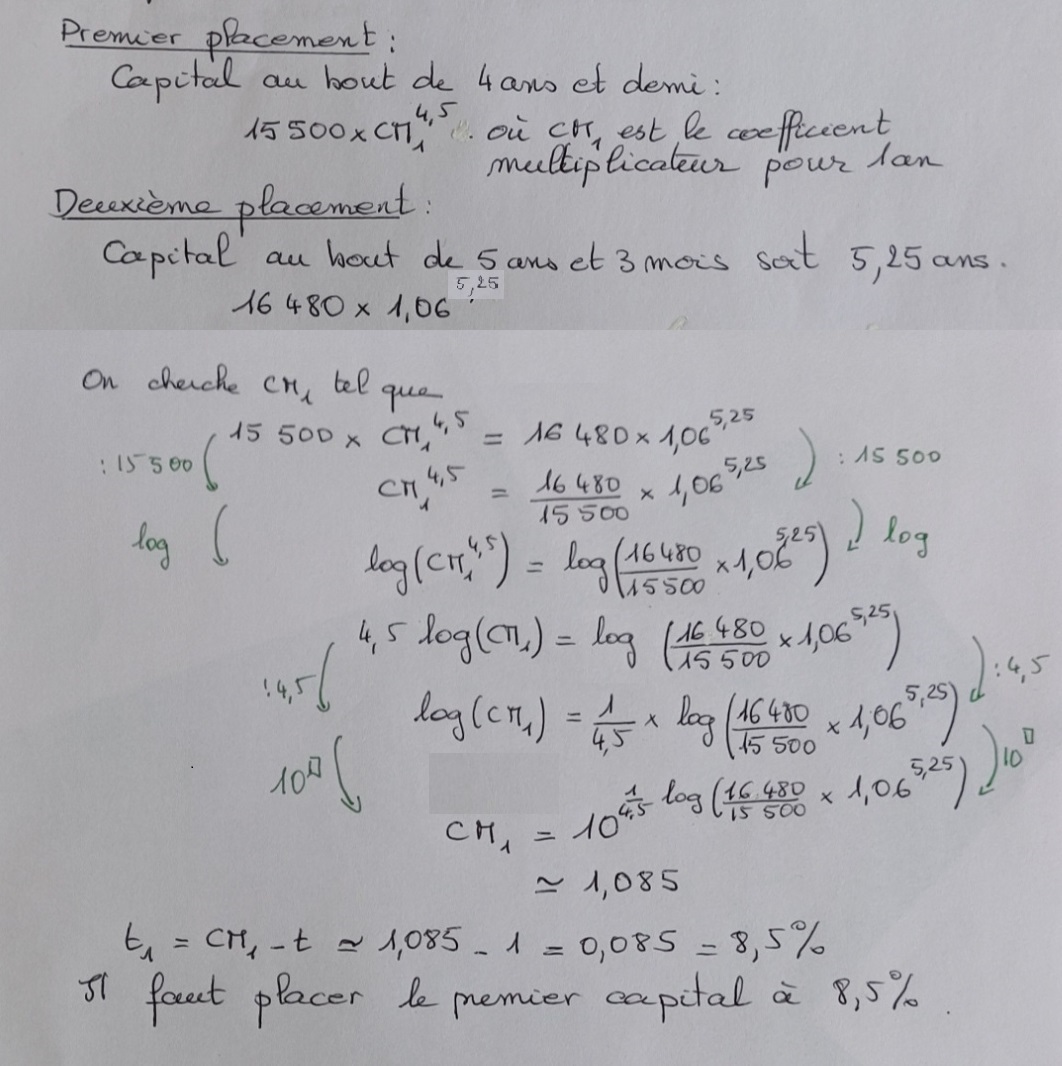 Premier placement :
Capital au bout de 4 ans et demi :
15 500 × CM₁^4,5 où CM₁ est le coefficient
multiplicateur pour 1 an
Deuxième placement :
Capital au bout de 5 ans et 3 mois soit 5,25 ans.
16 480 × 1,06^5,25
On cherche CM₁ tel que
: 15 500 15 500 × CM₁^4,5 = 16 480 × 1,06^5,25 : 15 500
CM₁^4,5 = 16 480/15 500 × 1,06^5,25
log log(CM₁^4,5) = log(16 480/15 500 × 1,06^5,25) log
4,5 log(CM₁) = log (16 480/15 500 × 1,06^5,25)
: 4,5 log(CM₁) = 1/4,5 × log(16 480/15 500 × 1,06^5,25) : 4,5
10^□ CM₁ = 10^(1/4,5 log(16 480/15 500 × 1,06^5,25)) 10^□
≃ 1,085
t₁ = CM₁ - t ≃ 1,085 - 1 = 0,085 = 8,5%
Il faut placer le premier capital à 8,5%.